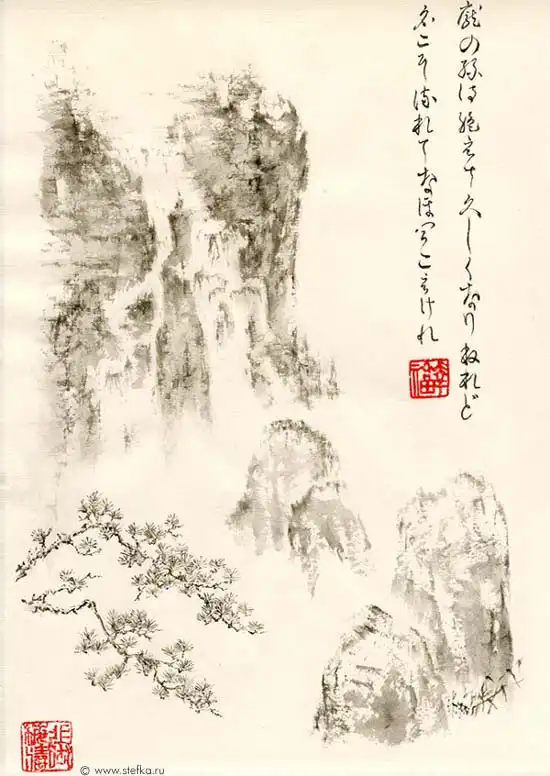 瀧の絲は絶えて久しくなりぬれど
名こそ流れてなほ聞こえけれ
© www.stefka.ru